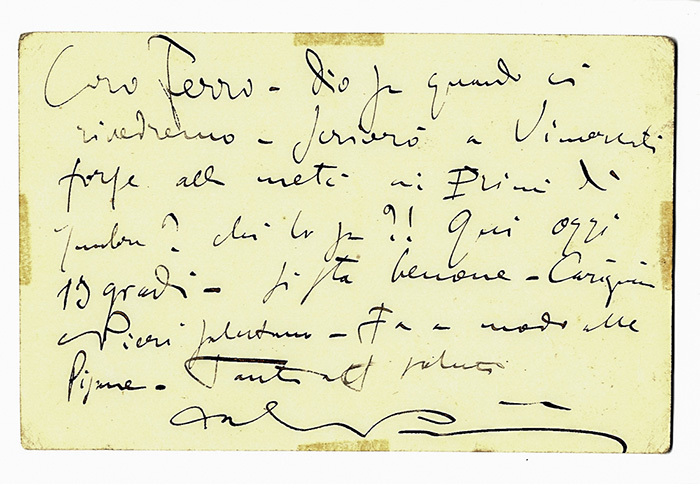 Caro Ferro - Dio sa quando ci
rivedremo - scriverò a Vimercati
forse alla metà ai Primi di
? chi lo sa?! Qui oggi
19 gradi - si sta benone -
Pieri salutano - Fa a modo alle
Pisane - Tanti saluti